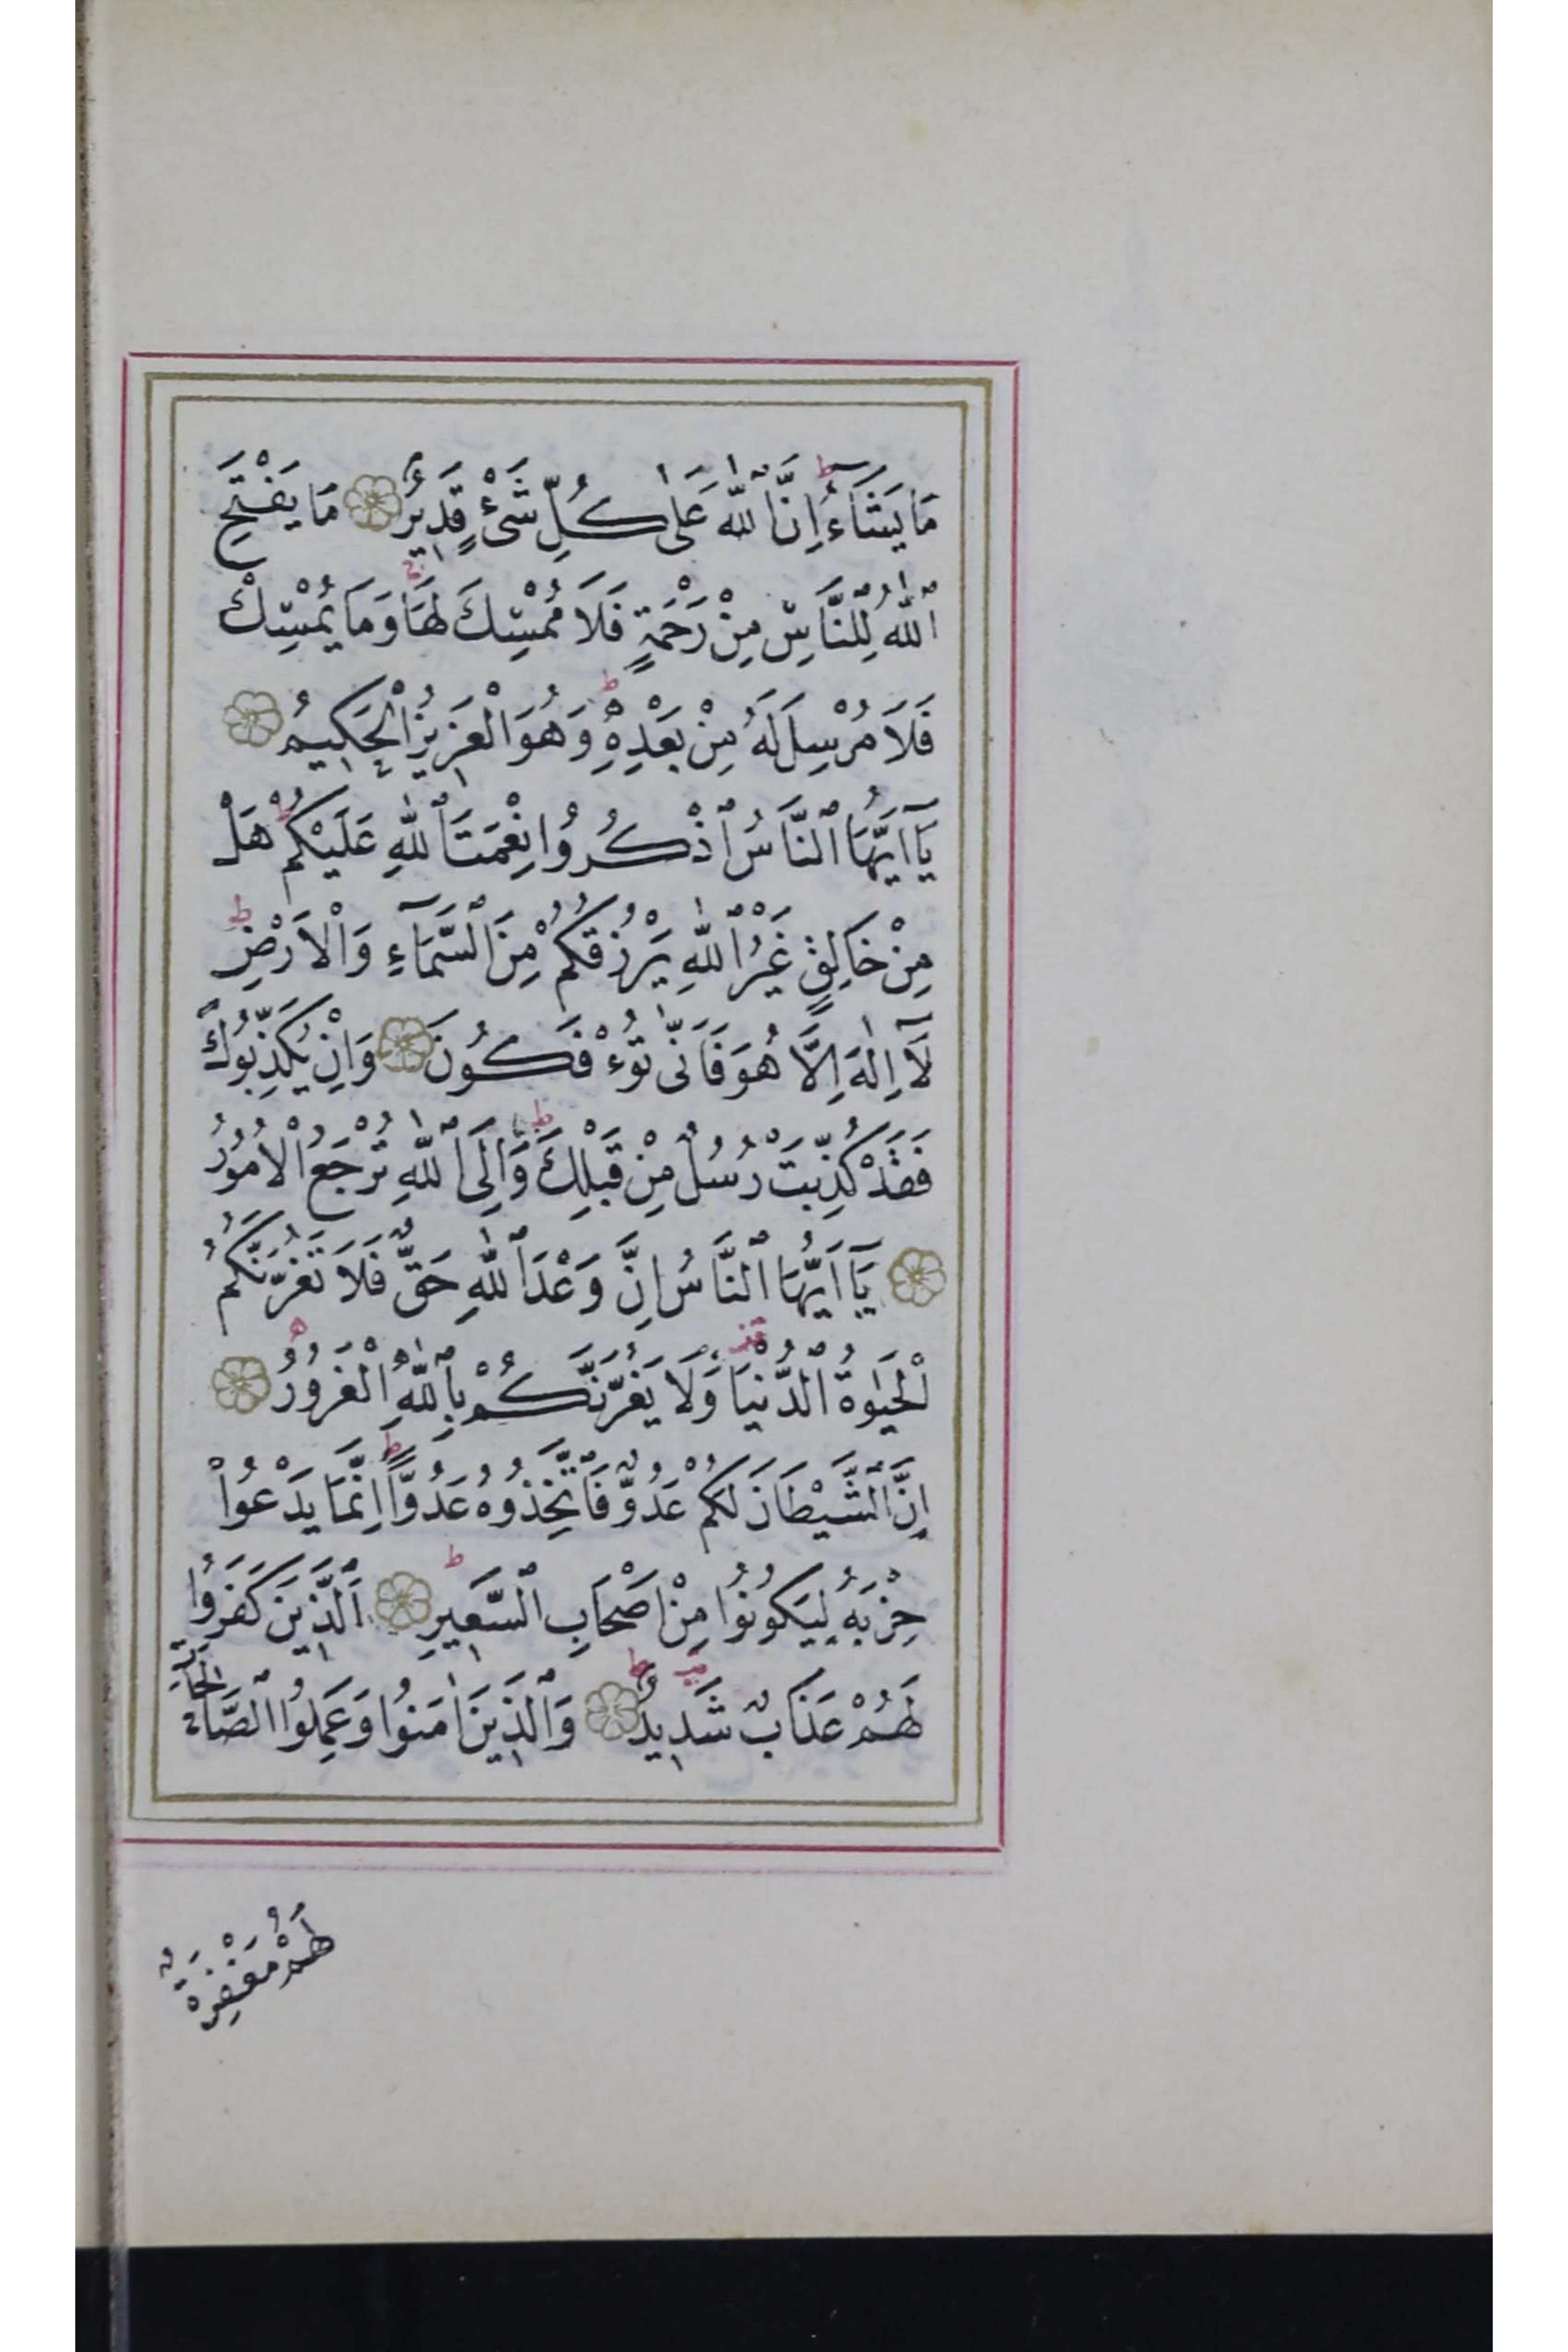 مَا يَشَٓاءُ اِنَّ ٱللّٰهَ عَلٰى كُلِّ شَىْءٍ قَدِيرٌ مَا يَفْتَحِ
ٱللّٰهُ لِلنَّاسِ مِنْ رَحْمَةٍ فَلَا مُمْسِكَ لَهَا وَمَا يُمْسِكْ
فَلَا مُرْسِلَ لَهُ مِنْ بَعْدِهِ وَهُوَ الْعَزِيزُ الْحَكِيمُ
يَٓا اَيُّهَا ٱلنَّاسُ ٱذْكُرُوا نِعْمَتَ ٱللّٰهِ عَلَيْكُمْ هَلْ
مِنْ خَالِقٍ غَيْرُ ٱللّٰهِ يَرْزُقُكُمْ مِنَ ٱلسَّمَٓاءِ وَالْاَرْضِ
لَٓا اِلٰهَ اِلَّا هُوَ فَاَنّٰى تُؤْفَكُونَ وَاِنْ يُكَذِّبُوكَ
فَقَدْ كُذِّبَتْ رُسُلٌ مِنْ قَبْلِكَ وَاِلَى ٱللّٰهِ تُرْجَعُ الْاُمُورُ
يَٓا اَيُّهَا ٱلنَّاسُ اِنَّ وَعْدَ ٱللّٰهِ حَقٌّ فَلَا تَغُرَّنَّكُمُ
الْحَيٰوةُ ٱلدُّنْيَا وَلَا يَغُرَّنَّكُمْ بِٱللّٰهِ الْغَرُورُ
اِنَّ ٱلشَّيْطَانَ لَكُمْ عَدُوٌّ فَاتَّخِذُوهُ عَدُوًّا اِنَّمَا يَدْعُوا
حِزْبَهُ لِيَكُونُوا مِنْ اَصْحَابِ ٱلسَّعِيرِ اَلَّذِينَ كَفَرُوا
لَهُمْ عَذَابٌ شَدِيدٌ وَٱلَّذِينَ اٰمَنُوا وَعَمِلُوا ٱلصَّالِحَاتِ
لَهُمْ مَغْفِرَةٌ